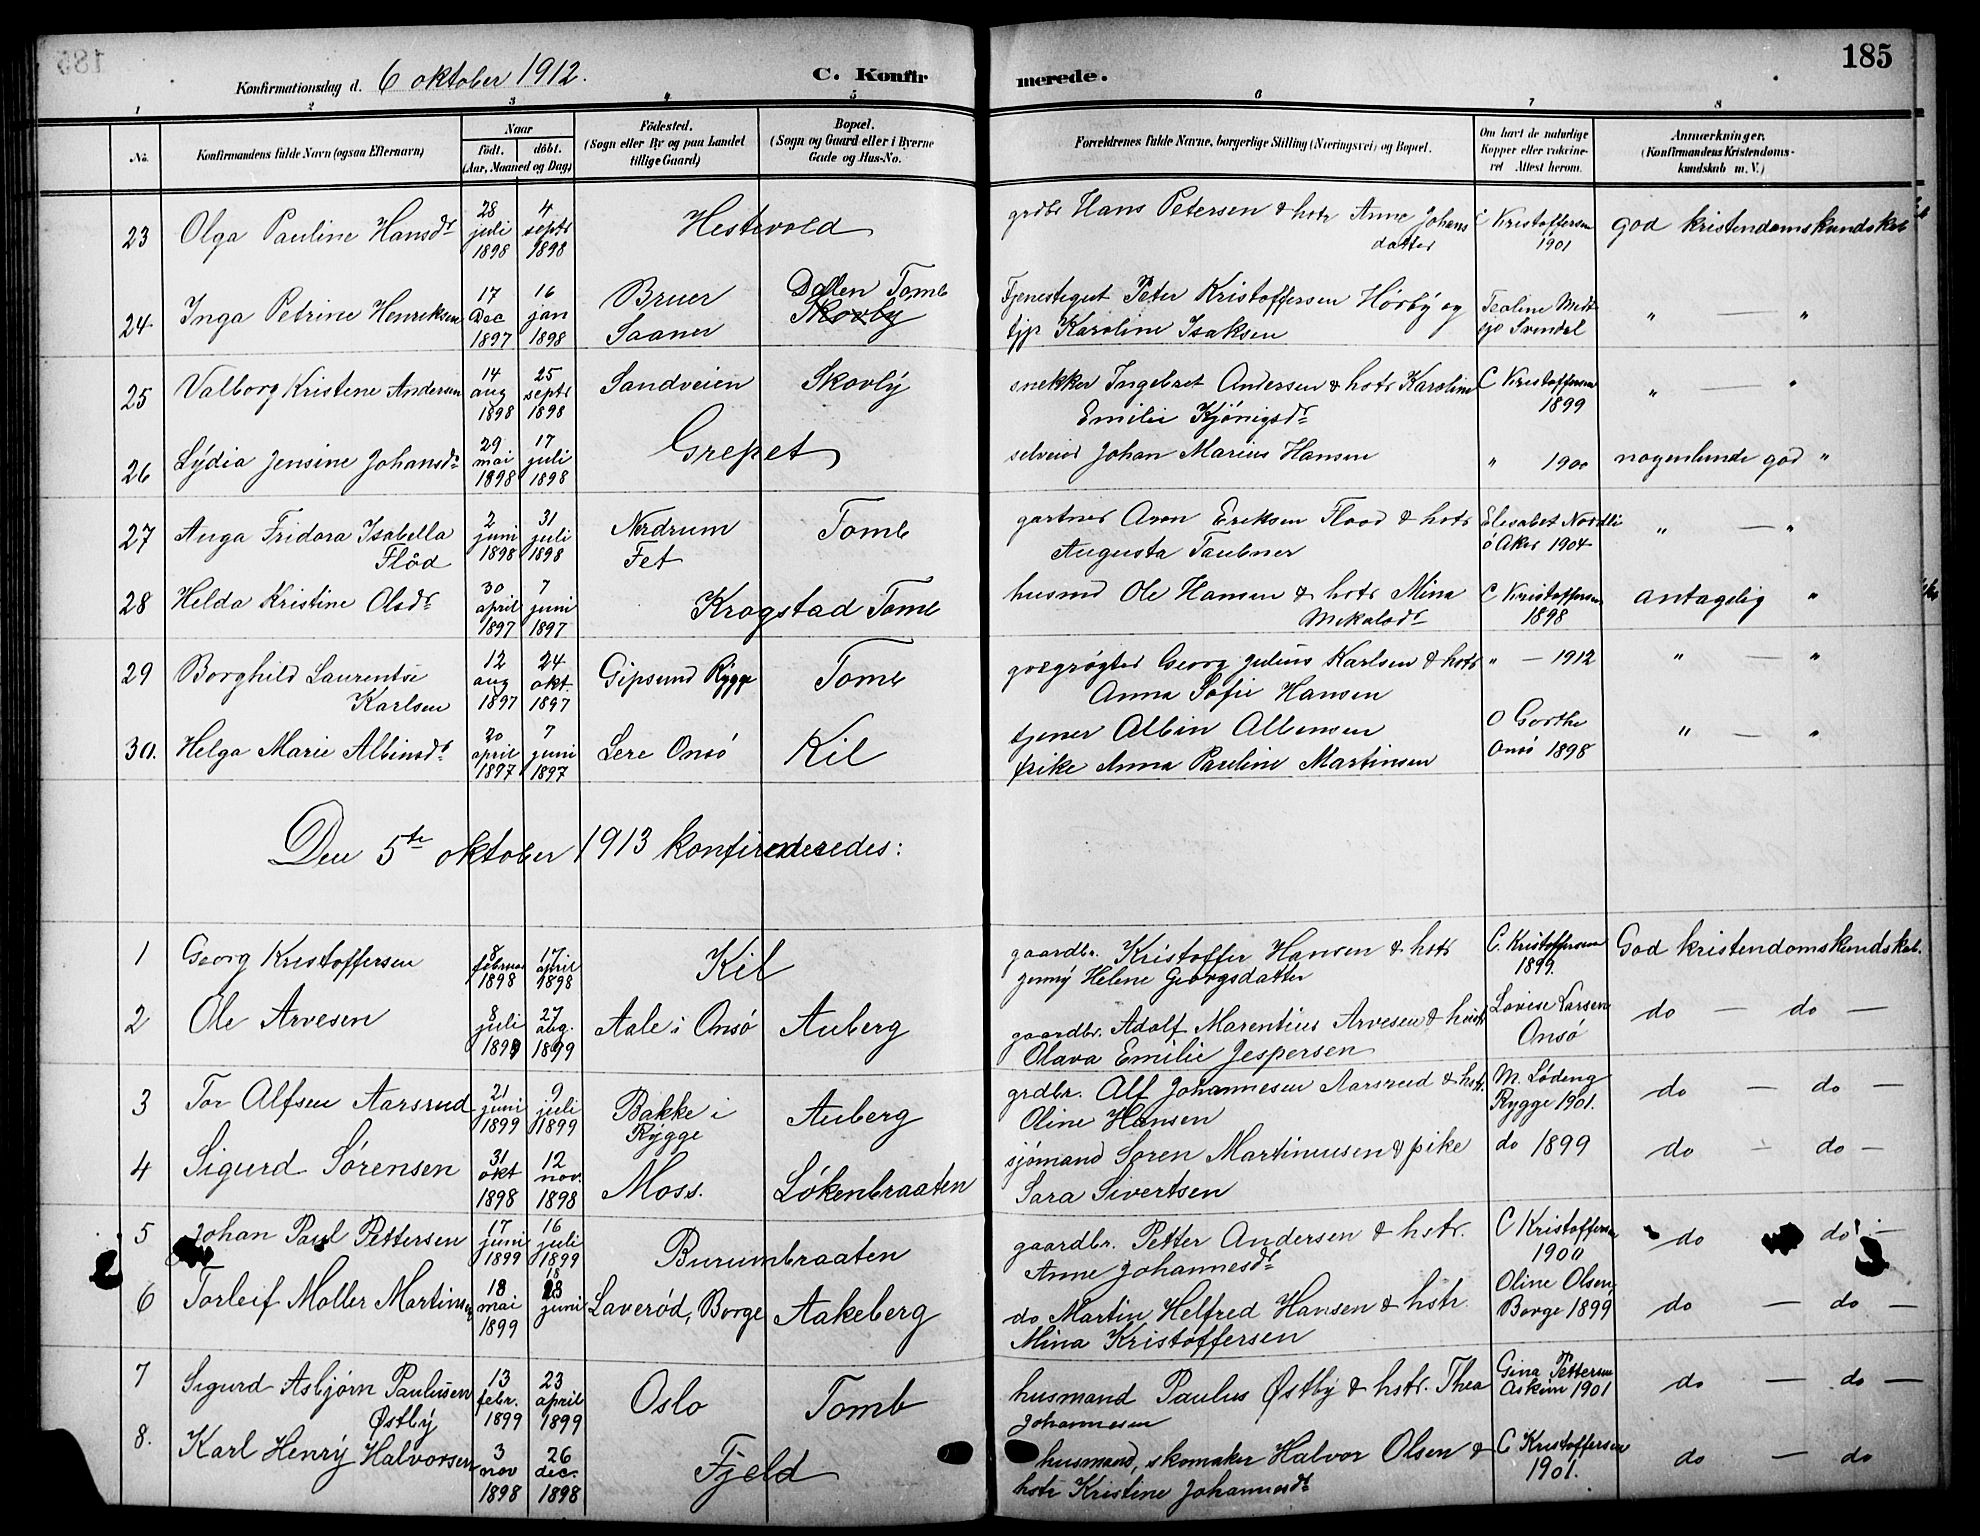 185
Konfirmationsdag d. 6 oktober 1912. C. Konfirmerede.
1 2 3 4 5 6 7 8
No. Konfirmandens fulde Navn (ogsaa Efternavn)
Naar født. døbt. (Aar, Maaned og Dag)
Fødested. (Sogn eller By og paa Landet tillige Gaard)
Bopæl. (Sogn og Gaard eller i Byerne Gade og Hus-No.
Forældrenes fulde Navne, borgerlige Stilling (Næringsvei) og Bopæl.
Om havt de naturlige Kopper eller vaccineret Attest herom.
Anmærkninger. (Konfirmandens Kristendomskundskab m. V.)
23 Olga Pauline Hansdr 28 juli 1898 4 septr 1898 Hestevold grdbr Hans Petersen & hstr Anne Johansdatter C Kristoffersen 1901 god kristendomskundskab
24 Inga Petrine Henriksen 17 Dec 1897 16 jan 1898 Bruer Saaner Dalen Tomb Skovby Tjenestegut Peter Kristoffersen Hörbÿ og tjp Karoline Isaksen " — "
25 Valborg Kristene Andersen 14 aug 1898 25 septr 1898 Sandveien Skovlÿ snekker Ingebret Andersen & hstr Karoline Emilie Kjönigsdr C Kristoffersen 1899 " — "
26 Lÿdia Jensine Johansdr 29 mai 1898 17 juli 1898 Grepet selveier Johan Marius Hansen " 1900 nogenlunde god "
27 Auga Fridora Isabella Flöd 2 juni 1898 31 juli 1898 Nerdrum Fet Tomb gartner Aron Eriksen Flood & hstr Augusta Taubner Elisabet Nordli ö Aker 1904 " — "
28 Helda Kristine Olsdr 30 april 1897 7 juni 1897 Krogstad Tomb husmd Ole Hansen & hstr Mina Mekalsdr C Kristoffersen 1898 antagelig "
29 Borghild Laurentse Karlsen 12 aug 1897 24 okt. 1897 Gipsund Rÿgge Tomb Georg Julius Karlsen & hstr Anna Sofie Hansen " — 1912 " — "
30. Helga Marie Albinsdr 20 april 1897 7 juni 1897 Lere Onsö Kil tjener Albin Albensen pike Anna Pauline Martinsen O Gorthe Onsö 1898 " — "
Den 5te oktober 1913 konfirmeredes:
1 Georg Kristoffersen 8 februar 1898 17 april 1898 Kil gaardbr. Kristoffer Hansen & hstr Jennÿ Helene Georgsdatter C. Kristoffersen 1899. God kristendomskundskab.
2 Ole Arvesen 8 juli 1899 27 aug. 1899 Aale i Onsö Auberg gaardbr. Adolf Marentius Arvesen & hustr Olava Emilie Jespersen Lovise Larsen Onsö do — do —
3 Tor Alfsen Aarsrud 21 juni 1899 9 juli 1899 Bakke i Rÿgge Auberg grdbr. Alf Johannesen Aarsrud & hstr. Oline Hansen M. Lödeng Rygge 1901. do — do —
4 Sigurd Sörensen 31 okt 1898 12 nov. 1898 Moss. Lökenbraaten sjömand Sören Martinusen & pike Sara Sivertsen do 1899 do - do —
5 Johan Paul Pettersen 17 juni 1899 16 juli 1899 Burumbraaten gaardbr. Petter Andersen & hstr. Anne Johannesdr C Kristoffersen 1900 do do —
6 Torleif Møller Martinsen 18 mai 1899 18 juni Laverød, Borge Aakeberg do Martin Helfred Hansen & hstr. Mina Kristoffersen Oline Olsen, Borge 1899 do — do —
7 Sigurd Asbjørn Paulusen Østbÿ 13 febr. 1899 23 april 1899 Oslo Tomb husmand Paulus Østbÿ & hstr. Thea Johannesen Gina Pettersen Askim 1901 do — do —
8. Karl Henrÿ Halvorsen 3 nov 1898 26 dec. 1898 Fjeld husmand, skomaker Halvor Olsen & hstr Kristine Johannesdr C Kristoffersen 1901. do — do